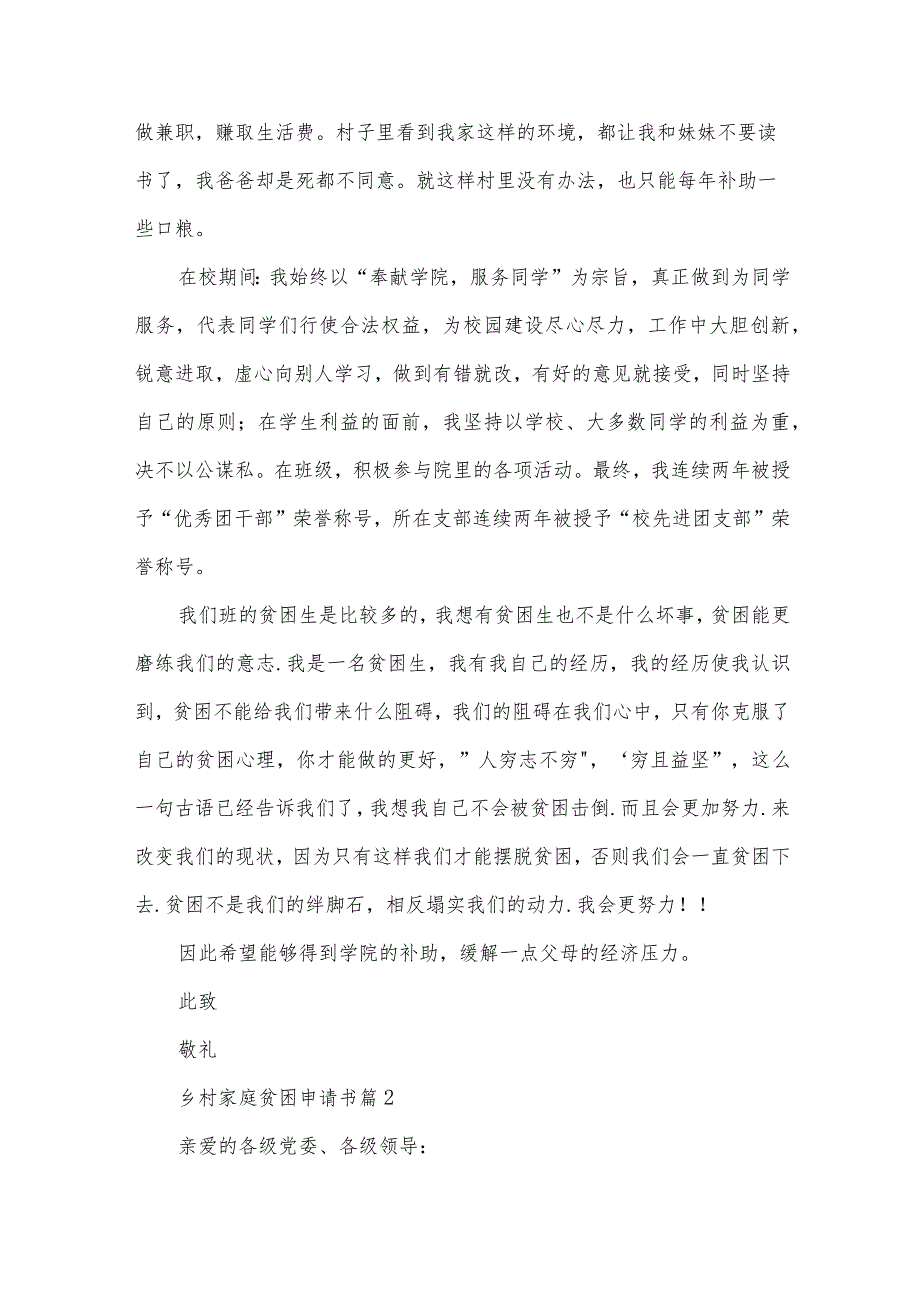 做兼职，赚取生活费。村子里看到我家这样的环境，都让我和妹妹不要读
书了，我爸爸却是死都不同意。就这样村里没有办法，也只能每年补助一
些口粮。
在校期间：我始终以“奉献学院，服务同学”为宗旨，真正做到为同学
服务，代表同学们行使合法权益，为校园建设尽心尽力，工作中大胆创新，
锐意进取，虚心向别人学习，做到有错就改，有好的意见就接受，同时坚持
自己的原则；在学生利益的面前，我坚持以学校、大多数同学的利益为重，
决不以公谋私。在班级，积极参与院里的各项活动。最终，我连续两年被授
予“优秀团干部”荣誉称号，所在支部连续两年被授予“校先进团支部”荣
誉称号。
我们班的贫困生是比较多的，我想有贫困生也不是什么坏事，贫困能更
磨练我们的意志.我是一名贫困生，我有我自己的经历，我的经历使我认识
到，贫困不能给我们带来什么阻碍，我们的阻碍在我们心中，只有你克服了
自己的贫困心理，你才能做的更好，”人穷志不穷"，‘穷且益坚”，这么
一句古语已经告诉我们了，我想我自己不会被贫困击倒.而且会更加努力.来
改变我们的现状，因为只有这样我们才能摆脱贫困，否则我们会一直贫困下
去.贫困不是我们的绊脚石，相反塌实我们的动力.我会更努力！！
因此希望能够得到学院的补助，缓解一点父母的经济压力。
此致
敬礼
乡村家庭贫困申请书篇2
亲爱的各级党委、各级领导：